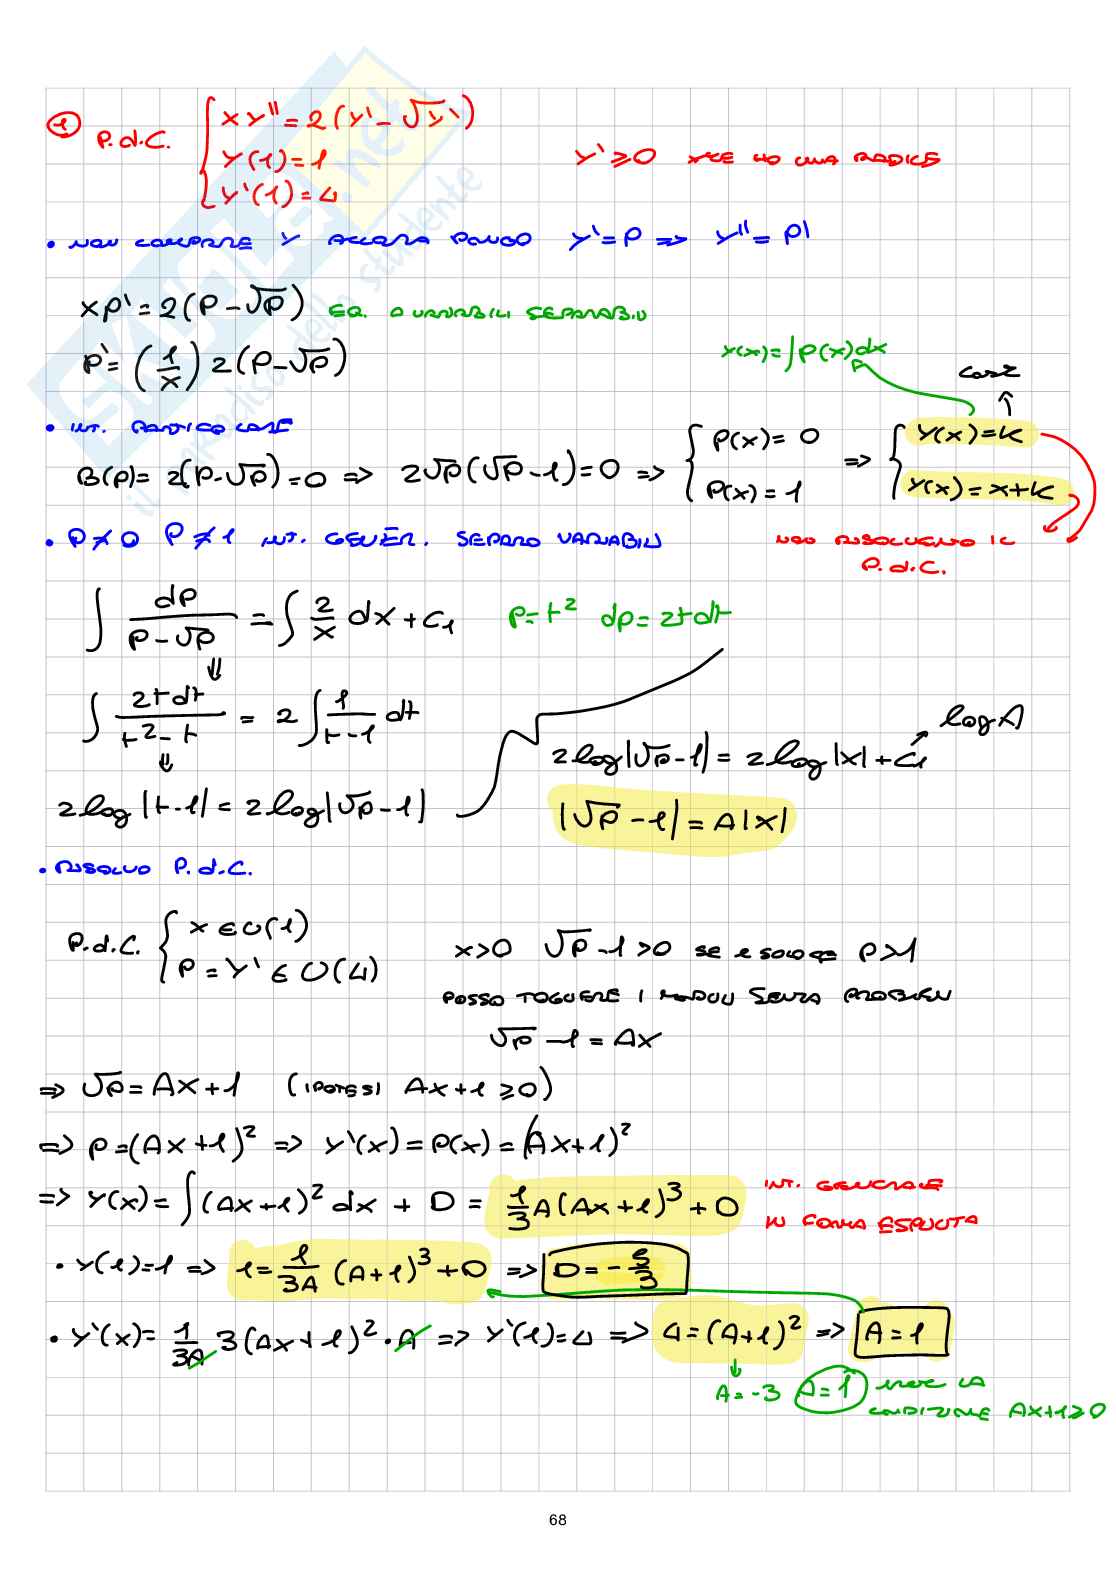 ① P.d.C. { xy'' = 2(y' - √y')
y(1) = 1
y'(1) = 4
y' ≥ 0 xchè ho una radice
• non compare y allora pongo y' = p => y'' = p'
xp' = 2(p - √p) EQ. a variabili separabili
p' = (1/x) 2(p - √p)
y(x) = ∫p(x)dx
cost
• int. particolare
B(p) = 2(p - √p) = 0 => 2√p(√p - 1) = 0 => { p(x) = 0 => { y(x) = k
p(x) = 1 y(x) = x + k
• p ≠ 0 p ≠ 1 int. gener. separo variabili
non risolvono il
P.d.C.
∫ dp/(p - √p) = ∫ 2/x dx + c₁ p = t² dp = 2tdt
⇓
∫ 2tdt/(t² - t) = 2 ∫ 1/(t-1) dt
⇓
log A
2log|√p - 1| = 2log|x| + c₁
2log|t-1| = 2log|√p - 1|
|√p - 1| = A|x|
• Risolvo P.d.C.
P.d.C. { x ∈ U(1)
p = y' ∈ U(4)
x > 0 √p - 1 > 0 se e solo se p > 1
posso togliere i moduli senza problemi
√p - 1 = Ax
=> √p = Ax + 1 (ipotesi Ax + 1 ≥ 0)
=> p = (Ax + 1)² => y'(x) = p(x) = (Ax + 1)²
=> y(x) = ∫(Ax + 1)² dx + D = 1/3A (Ax + 1)³ + D
int. generale
in forma esplicita
• y(1) = 1 => 1 = 1/3A (A + 1)³ + D => D = - 5/3
• y'(x) = 1/3A 3(Ax + 1)² · A => y'(1) = 4 => 4 = (A + 1)² => A = 1
↓
A = -3 A = 1 la
condizione Ax+1≥0
68